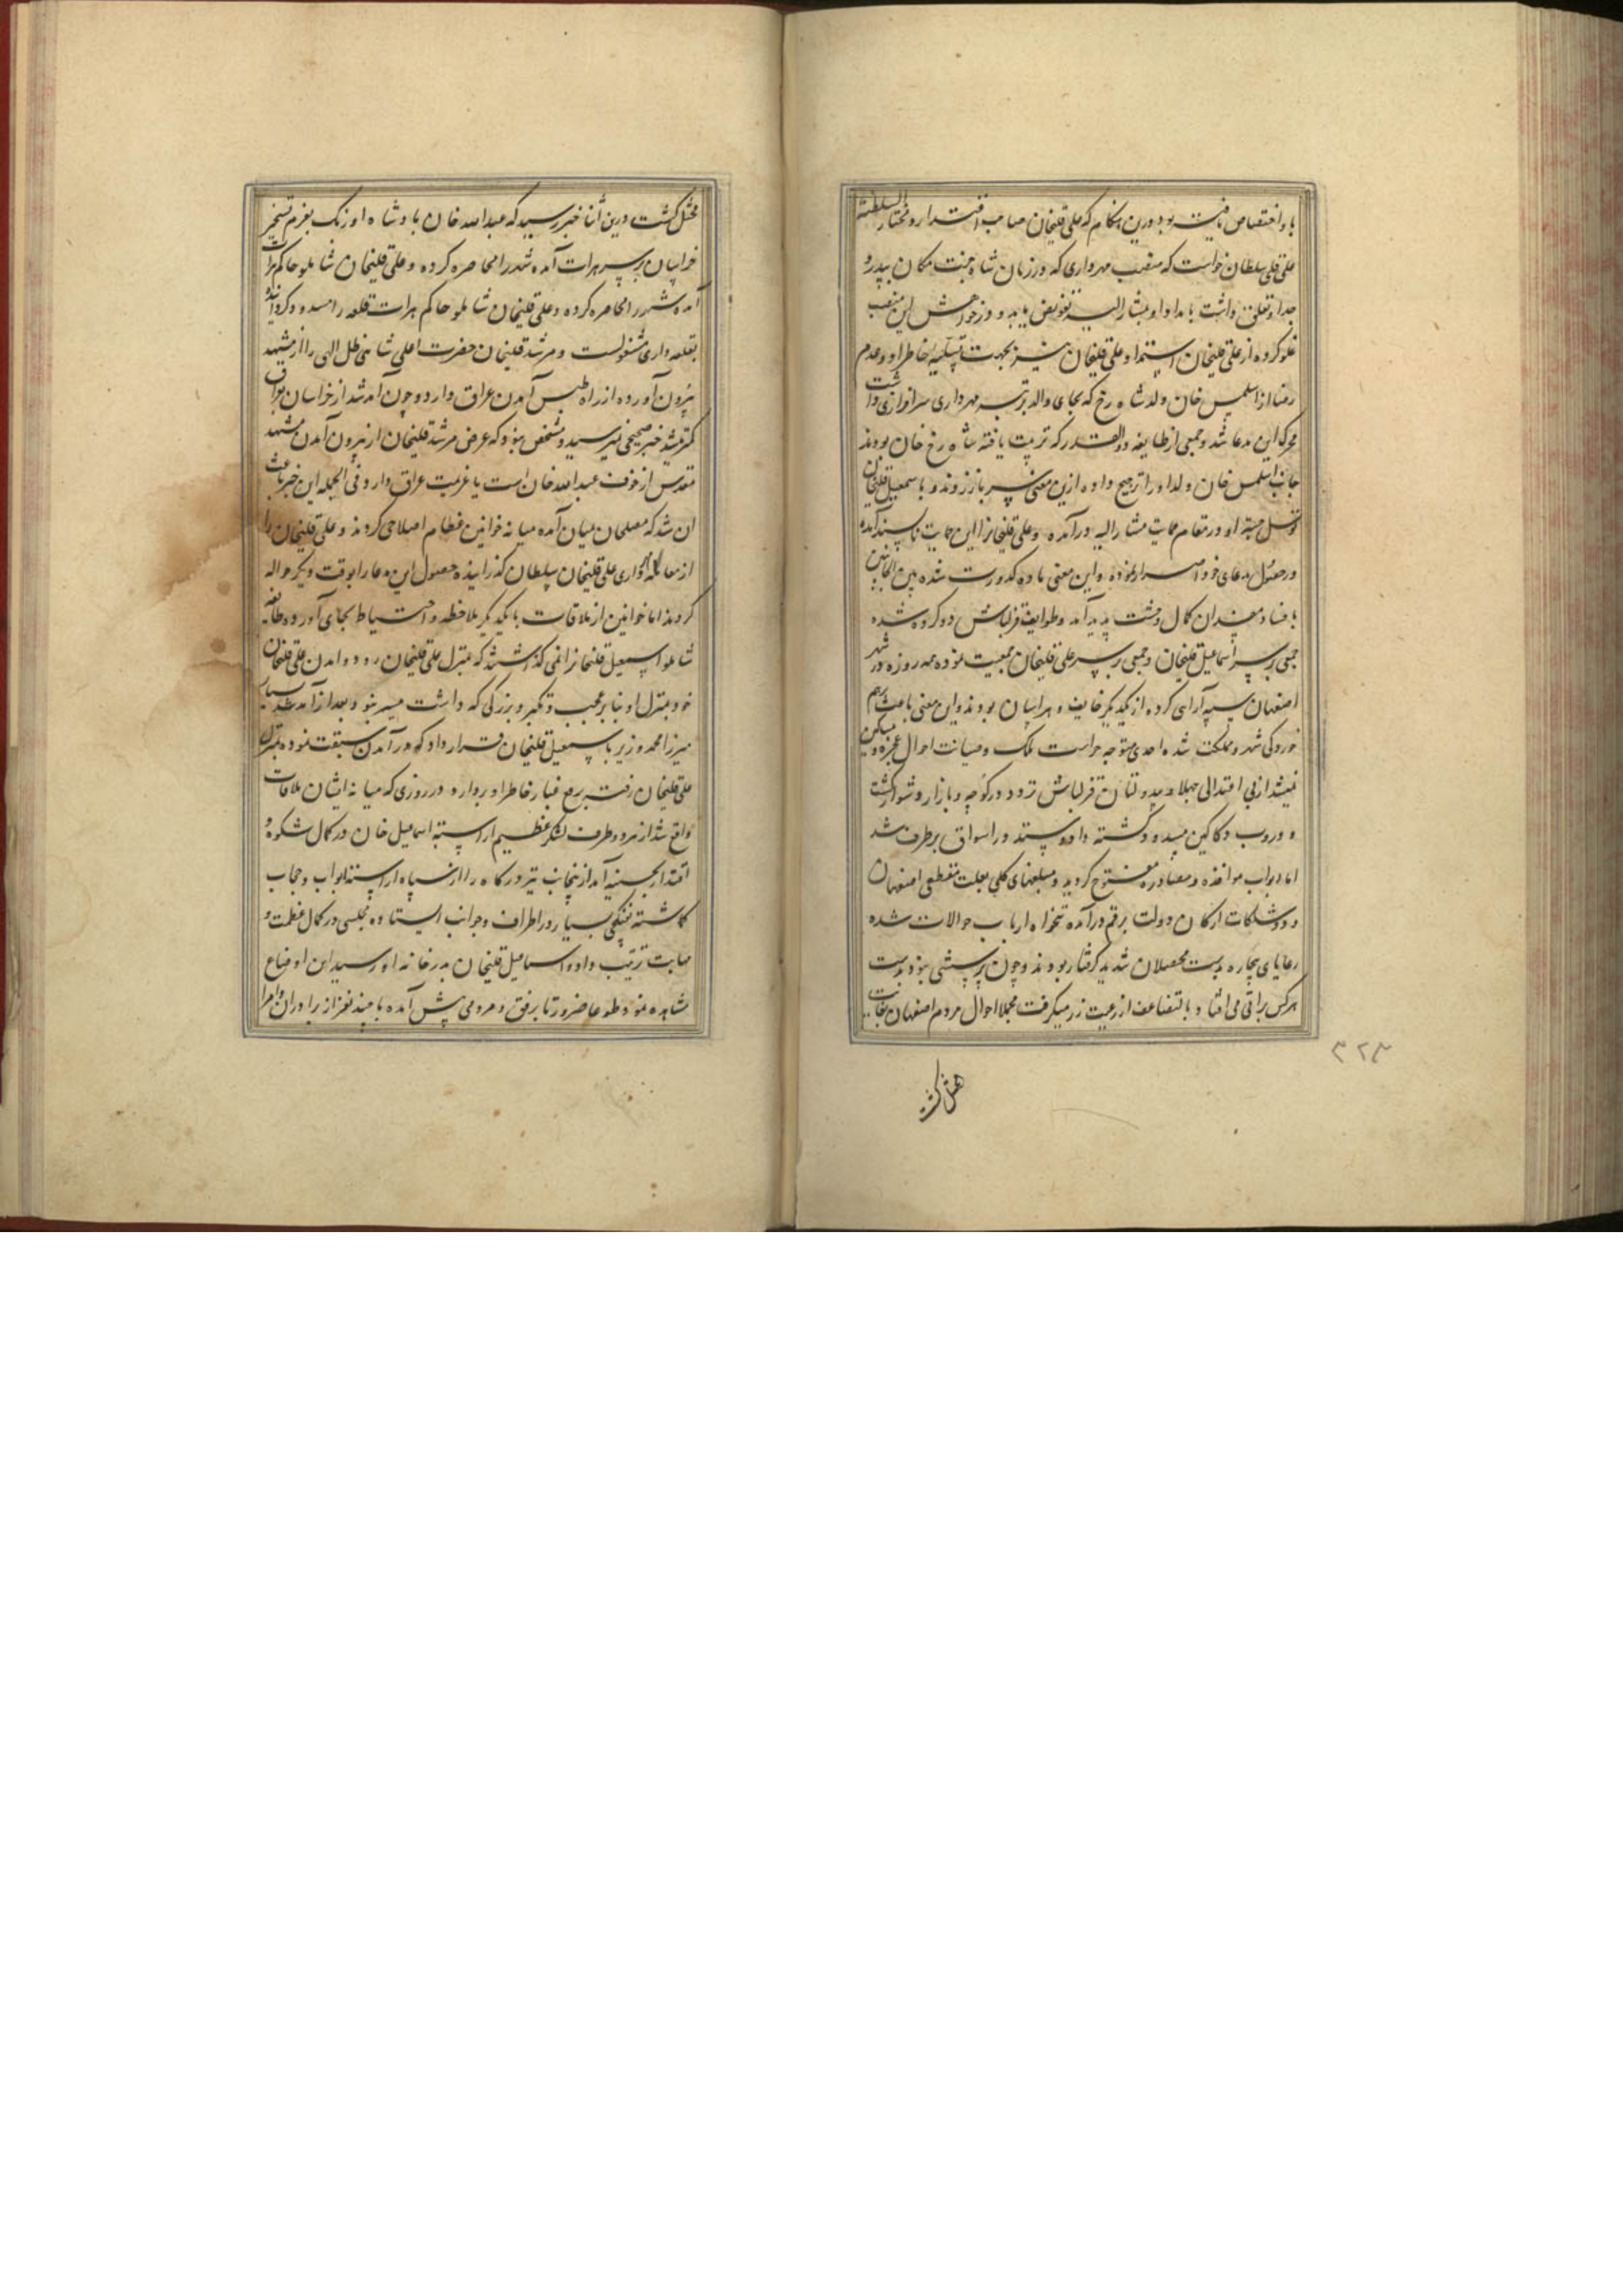 با و اختصاص یافته بود درین هنکام که علی قلیخان صاحب اقتدار و مختار السلطنه
علی قلی سلطان خواست که منصب مهرداری که در زمان شاه جنت مکان به پدر و
جد او تعلق داشت با مداد او بمشار الیه تفویض یابد و در خواهش این منصب
غلو کرده از علی قلیخان استمداد و علی قلیخان نیز بجهت تسلیه خاطر او و عدم
رضا از اسلمس خان ولد شاه رخ که بجای والد برتبه مهرداری سرافرازی داشت
محرک این مدعا شد و جمعی از طایفه ذوالقدر که تربیت یافته شاه رخ خان بودند
جانب اسلمس خان ولد او را ترجیح داده ازین معنی سر باز زدند و با سمعیل قلیخان
توسل جسته او در مقام حمایت مشار الیه درآمده و علی قلیخانرا این حمایت ناپسند آمده
در حصول مدعای خود اصرار نموده و این معنی ماده کدورت شده بین الجانبین
با فساد مفسدان کمال وحشت پدید آمد و طوایف قزلباش دو کروه شده
جمعی بر سر اسماعیل قلیخان و جمعی بر سر علی قلیخان جمعیت نموده همه روزه در شهر
اصفهان سپه آرایی کرده از یکدیگر خایف و هراسان بودند و این معنی باعث برهم
خوردکی شهر و مملکت شده احدی متوجه حراست ملک و صیانت احوال عجزه و مساکین
نمیشد از بی اعتدالی جهلا و بیدولتان قزلباش تردد در کوچه و بازار دشوار کشت
و دروب دکاکین مسدود کشته داد و ستد در اسواق برطرف شد
اما ابواب مواخذه و مصادره مفتوح کردید و مبلغهای کلی بعلت متقطعی اصفهان
و پیشکشات ارکان دولت برقم درآمده تنخواه ارباب حوالات شده
رعایای بیچاره بدست محصلان شدید کرفتار بودند و چون پرسشی نبود بدست
هرکس براتی می افتاد با تضاعف از رعیت زر میکرفت مجملا احوال مردم اصفهان بغایت
مختل کشت
۳۲۳
مختل کشت درین اثنا خبر رسید که عبدالله خان پادشاه اوزبک بعزم تسخیر
خراسان بر سر هرات آمده شهر را محاصره کرده و علی قلیخان شاملو حاکم هرات
آمده شهر را محاصره کرده و علی قلیخان شاملو حاکم هرات قلعه را مسدود کردانیده
بقلعه داری مشغولست و مرشد قلیخان حضرت اعلی شاهی ظل الهی را از مشهد
بیرون آورده از راه طبس آمدن عراق دارد و چون آمد شد از خراسان بعراق
کمتر میشد خبر صحیحی نمیرسید و مشخص نبود که غرض مرشد قلیخان از بیرون آمدن مشهد
مقدس از خوف عبدالله خان است یا عزیمت عراق دارد فی الجمله این خبر باعث
آن شد که مصلحان میان آمده میانه خوانین عظام اصلاحی کردند و علی قلیخان را
از معامله مهرداری علی قلیخان سلطان کذرانیده حصول این مدعا را بوقت دیکر حواله
کردند اما خوانین از ملاقات با یکدیکر ملاحظه و احتیاط بجای آورده طایفه
شاملو اسمعیل قلیخانرا نمی کذاشتند که بمنزل علی قلیخان رود و آمدن علی قلیخان
خود بمنزل او بنا بر عجب و تکبر و بزرکی که داشت میسر نبود بعد از آمد شد بسیار
میرزا محمد وزیر با سمعیل قلیخان قرار داد که در آمدن سبقت نموده بمنزل
علی قلیخان رفته رفع غبار خاطر او بردارد در روزی که میانه ایشان ملاقات
واقع شد از هر دو طرف لشکر عظیم آراسته اسماعیل خان در کمال شکوه و
اقتدار بحسینیه آمد ازینجانب نیز درکاه را از سپاه آراسته ابواب و حجاب
کماشته تفنکچی بسیار در اطراف و جوانب ایستاده مجلسی در کمال عظمت و
مهابت ترتیب داد و اسماعیل قلیخان بدر خانه او رسید این اوضاع
مشاهده نمود طوعا ضرورتا برفق و مردمی پیش آمده با چند نفر از برادران و امرا